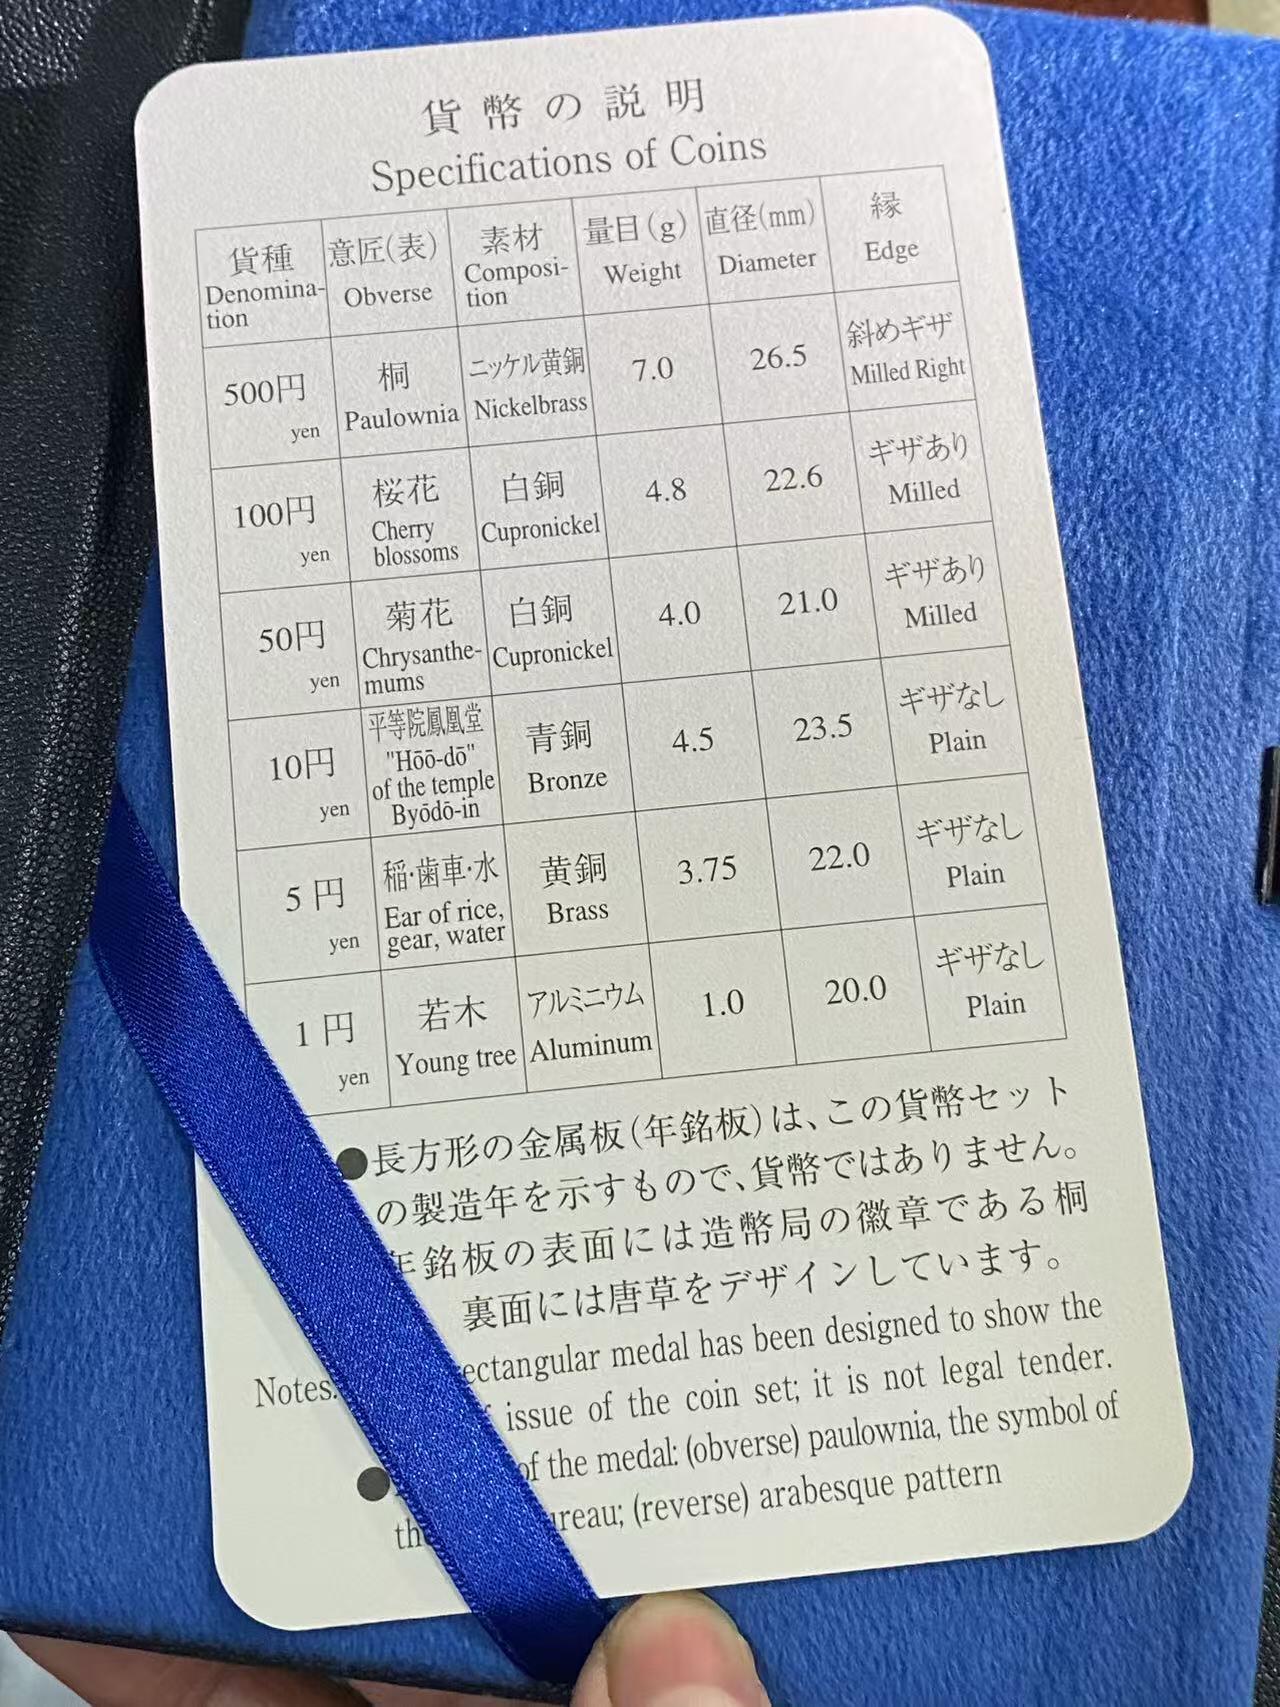 貨幣の説明
Specifications of Coins
貨種 意匠(表) 素材 量目(g) 直径(mm) 縁
Denomina-tion Obverse Composi-tion Weight Diameter Edge
500円 桐 ニッケル黄銅 7.0 26.5 斜めギザ
yen Paulownia Nickelbrass Milled Right
100円 桜花 白銅 4.8 22.6 ギザあり
yen Cherry blossoms Cupronickel Milled
50円 菊花 白銅 4.0 21.0 ギザあり
yen Chrysanthe-mums Cupronickel Milled
10円 平等院鳳凰堂 青銅 4.5 23.5 ギザなし
yen "Hōō-dō" of the temple Byōdō-in Bronze Plain
5円 稲·歯車·水 黄銅 3.75 22.0 ギザなし
yen Ear of rice, gear, water Brass Plain
1円 若木 アルミニウム 1.0 20.0 ギザなし
yen Young tree Aluminum Plain
●長方形の金属板(年銘板)は、この貨幣セット
の製造年を示すもので、貨幣ではありません。
年銘板の表面には造幣局の徽章である桐
裏面には唐草をデザインしています。
Notes: rectangular medal has been designed to show the
issue of the coin set; it is not legal tender.
● of the medal: (obverse) paulownia, the symbol of
(reverse) arabesque pattern